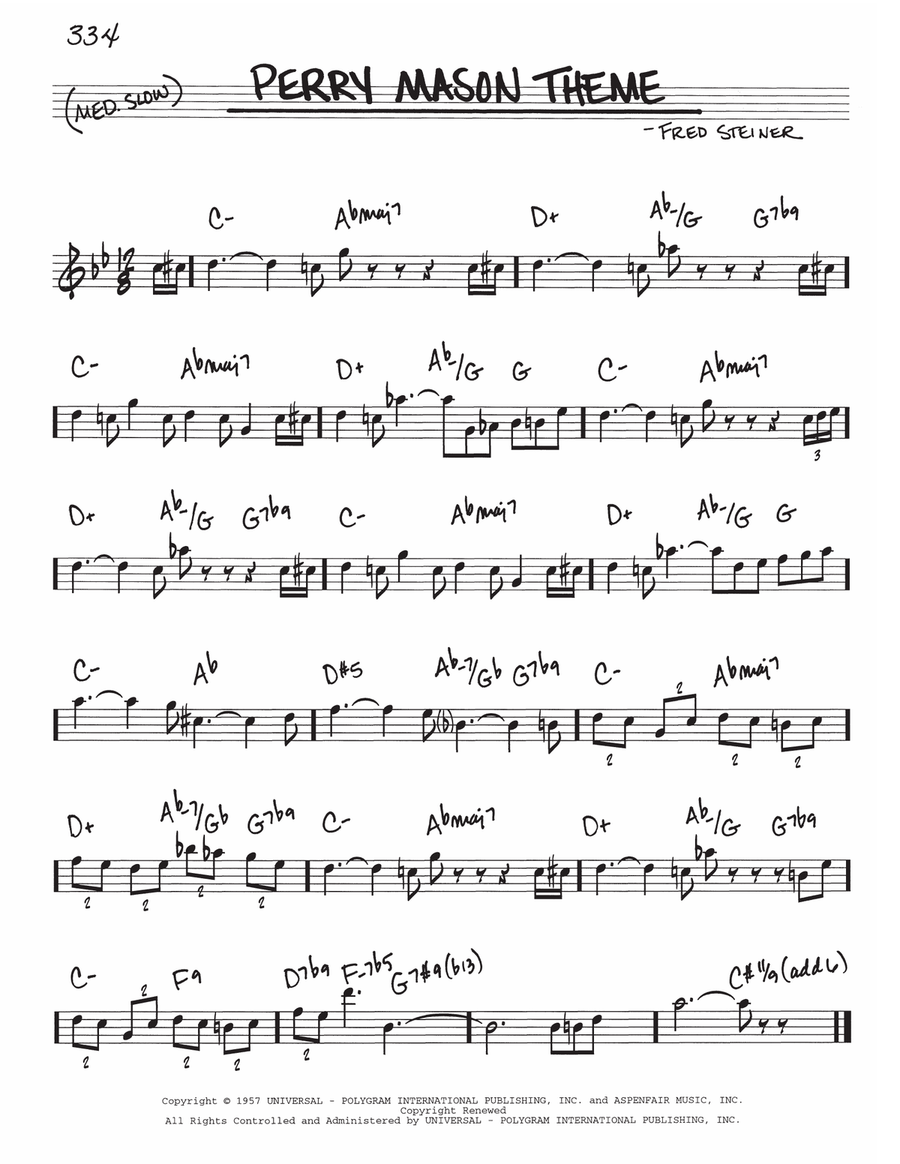 334
(MED. SLOW)
PERRY MASON THEME
- FRED STEINER
C- Abmaj7 D+ Ab-/G G7b9
12
8
C- Abmaj7 D+ Ab-/G G C- Abmaj7
3
D+ Ab-/G G7b9 C- Abmaj7 D+ Ab-/G G
C- Ab D#5 Ab-7/Gb G7b9 C- Abmaj7
2
(b)
2 2 2
D+ Ab-7/Gb G7b9 C- Abmaj7 D+ Ab-/G G7b9
2 2 2 2
C- F9 D7b9 F-7b5 G7#9(b13) C#11/9(add6)
2
2 2 2 2
Copyright © 1957 UNIVERSAL - POLYGRAM INTERNATIONAL PUBLISHING, INC. and ASPENFAIR MUSIC, INC.
Copyright Renewed
All Rights Controlled and Administered by UNIVERSAL - POLYGRAM INTERNATIONAL PUBLISHING, INC.